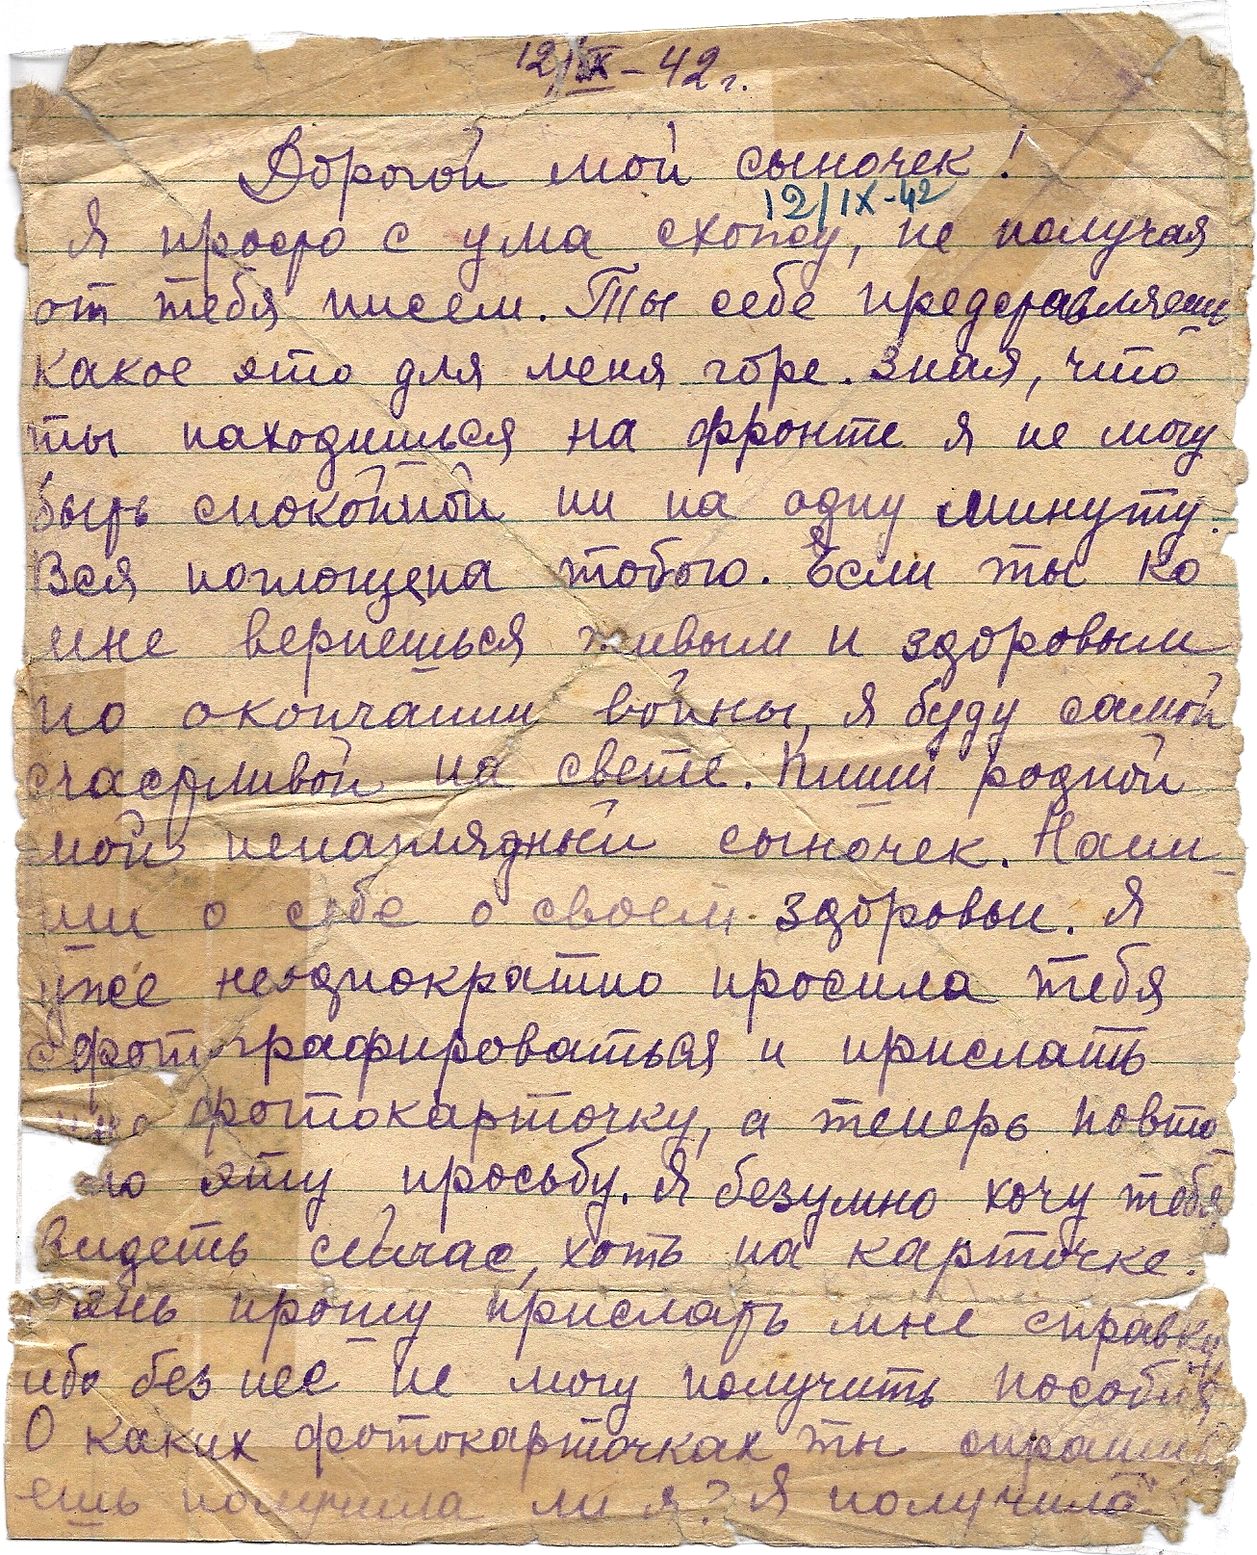 12/IX-42г.
Дорогой мой сыночек!
12/IX-42
Я просто с ума схожу, не получая
от тебя писем. Ты себе представляешь
какое это для меня горе. Зная, что
ты находишься на фронте я не могу
быть спокойной ни на одну минуту.
Вся поглощена тобою. Если ты ко
мне вернешься живым и здоровым
по окончании войны, я буду самой
счастливой на свете. Пиши родной
мой ненаглядный сыночек. Напи
ши о себе о своем здоровьи. Я
уже неоднократно просила тебя
сфотографироваться и прислать
мне фотокарточку, а теперь повто
ю эту просьбу. Я безумно хочу тебя
видеть сейчас, хоть на карточке.
ень прошу прислать мне справку
ибо без нее не могу получить пособия
О каких фотокарточках ты спрашив
ешь получила ли я? Я получила